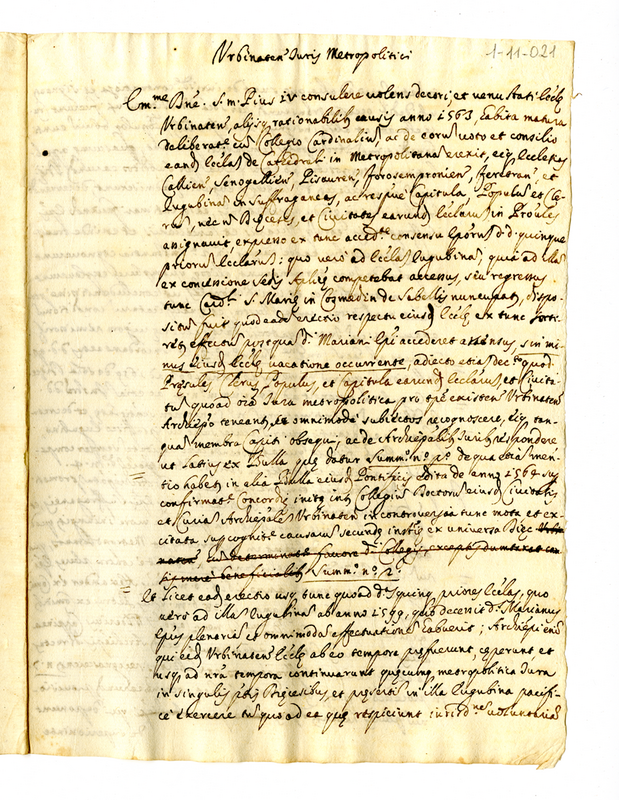 1-11-021
Urbinaten Juris Metropolitici
Em.me Dne. S. m. Pius IV consulere volens decori, et venustati Eccle
Urbinaten, alysq; rationabilib causis anno 1563 habita matura
deliberate cu Collegio Cardinaliu, ac de eorum voto et consilio
eand Ecclas de Cathedrali in Metropolitana erexit, eiq; Ecclesias
Callien, Senogallien, Pisauren, Forosempronien, Feretran, et
Eugubina in suffraganeas, ac respue Capitula Populus et Cle
rus, nec n Dioceses, et Civitates earund Ecclaru in Provles
assignavit expresso ex tunc acced.te consensu Eporu d d. quinque
prioru Ecclaru: quo vero ad Ecclas Eugubina, quia ad illas
ex concessione Sedis Aplice competebat accessus, seu regressus
tunc Card.li S. Marie in Cosmedin de Sabellis nuncupat, dispo-
situ fuit quod eade erectio respectu eiusd Eccle ex tunc sorti
ret effectu postqua d. Mariani Epi accederet assensus sin mi
nus eiusd Eccle vacatione occurrente, adiecto etia dec.to quod
Presules Clerus Populus, et Capitula earund Ecclaru, et Civita
tu quoad oia Jura metropolitica pro tpe existen Urbinaten
Archiepo teneant, et omnimode subiectos recognoscere, eiq; tan-
qua membra Capiti obsequi, ac de Archiepalib Jurib respondere
ut latius ex Bulla que datur Summ.o n.o p.o de qua etia men
tio habet in alia Bulla eiusd Pontificis edita de anno 1564 sup
confirmate Concordie inite int Collegiu Doctoru eiusd Civitatis,
et Curia Archiepale Urbinaten in controversia tunc mota et ex-
citata sup cognite causaru secunde instie ex universa Dioc
Summ.o n.o 2.o
Et licet ead erectio usq; tunc quoad d.as quinq; priores Ecclas, quo
vero ad illas Eugubina ab anno 1599, quo decessit d. Marianus
Epus plenariu et omnimoda effectuatione habuerit; Archiepi ens
qui eid Urbinaten Eccle ab eo tempore prefuerunt, ceperunt et
usq; ad nra tempora continuarunt quecunq; metropolitica Jura
in singulis pdis Diocesibus, et psertim in illa Eugubina pacifi-
ce exercere tu quo ad ea que respiciunt iurisd.nes voluntaria